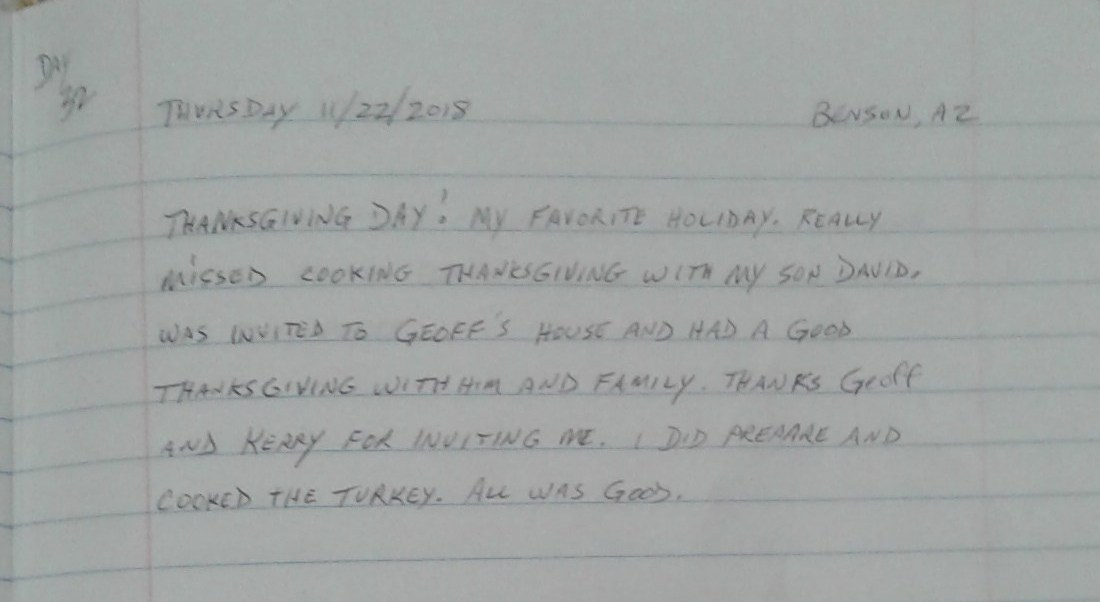 DAY
32
THURSDAY 11/22/2018 BENSON, AZ
THANKSGIVING DAY! MY FAVORITE HOLIDAY. REALLY
MISSED COOKING THANKSGIVING WITH MY SON DAVID.
WAS INVITED TO GEOFF'S HOUSE AND HAD A GOOD
THANKSGIVING WITH HIM AND FAMILY. THANKS Geoff
AND KERRY FOR INVITING ME. I DID PREPARE AND
COOKED THE TURKEY. ALL WAS GOOD.